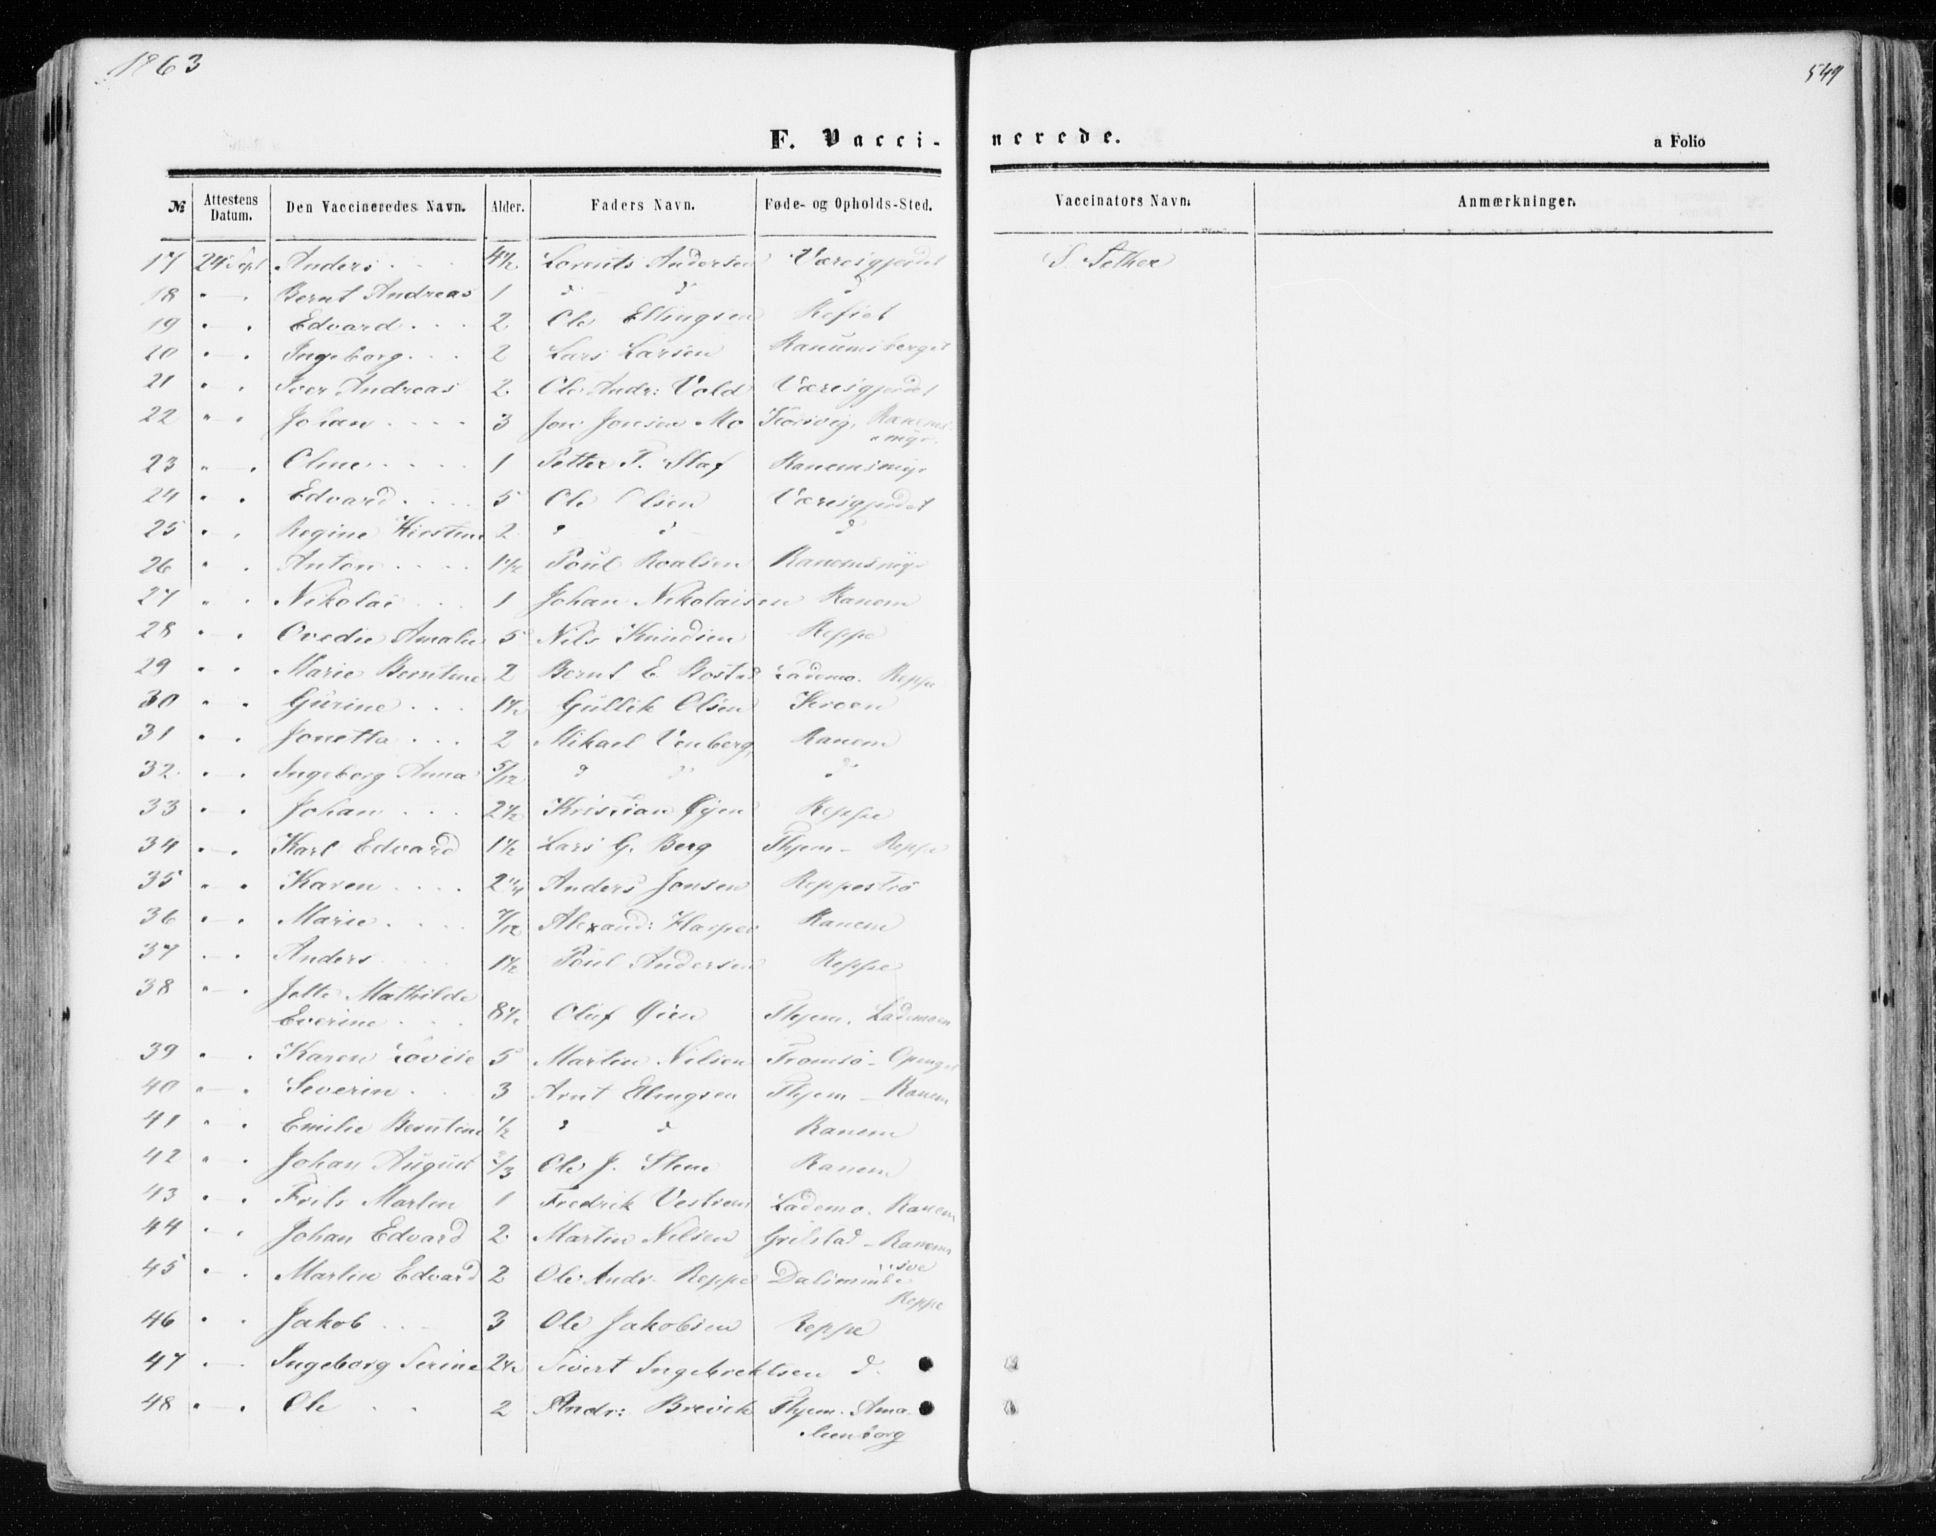 1863
549
F. Vacci-
nerede.
a Folio
№ Attestens Datum. Den Vaccineredes Navn. Alder. Faders Navn. Føde- og Opholds-Sted. Vaccinators Navn. Anmærkninger.
17 24 Sept Anders 4½ Lorents Andersen Væresgjerdet S. Sether
18 " — " Bernt Andreas 1 d d d
19 " — " Edvard 2 Ole Ellingsen Refset
20 " — " Ingeborg 2 Lars Larsen Ranumsberget
21 " — " Iver Andreas 2 Ole Andr: Vold Væresgjerdet
22 " — " Johan 3 Jon Jonsen Mo Korsvig, Ranems-
myr
23 " — " Oline 1 Petter P. Slaf Ranemsmyr
24 " — " Edvard 5 Ole Olsen Væresgjerdet
25 " — " Regine Kirstine 2 " d d
26 " — " Anton 1½ Poul Roalsen Ranemsmyr
27 " — " Nikolai 1 Johan Nikolaisen Ranem
28 " — " Ovedie Amalie 5 Nils Knudsen Reppe
29 " — " Marie Berntine 2 Bernt E. Rostad Lademo. Reppe
30 " — " Gurine 1½ Gullik Olsen Kroen
31 " — " Jonetta 2 Mikael Venberg Ranem
32 " — " Ingeborg Anna 5/12 d d d
33 " — " Johan 2½ Kristian Øyen Reppe
34 " — " Karl Edvard 1½ Lars G. Berg Thjem - Reppe
35 " — " Karen 2¼ Anders Jonsen Reppestrø
36 " — " Marie 7/12 Alexand: Harper Ranem
37 " — " Anders 1½ Poul Andersen Reppe
38 " — " Jette Mathilde
Everine 8½ Oluf Øien Thjem. Lademoen
39 " — " Karen Lovise 5 Martin Nilsen Tromsø -
40 " — " Severin 3 Arnt Ellingsen Thjem - Ranem
41 " — " Emilie Berntine ½ " d Ranem
42 " — " Johan August 2/3 Ole J. Stene Ranem
43 " — " Frits Martin 1 Fredrik Vestrum Lademo. Ranem
44 " — " Johan Edvard 2 Martin Nilsen Grilstad - Ranem
45 " — " Martin Edvard 2 Ole Andr. Reppe
Reppe
46 " — " Jakob 3 Ole Jakobsen Reppe
47 " — " Ingeborg Serine 2½ Sivert Ingebrektsen d
48 " — " Ole 2 Andr: Brevik Thjem. Ama-
lienborg